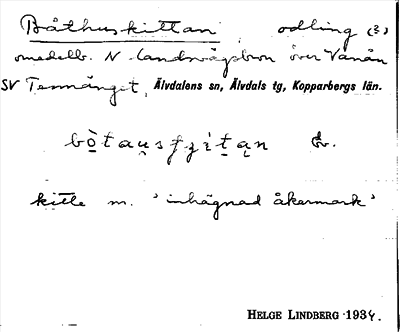 Båthuskittan, odling (3)
omedelb. N landsvägsbron över Vanån
SV Tennänget, Älvdalens sn, Älvdals tg, Kopparbergs län.
kitte m. 'inhägnad åkermark'
HELGE LINDBERG 1934.